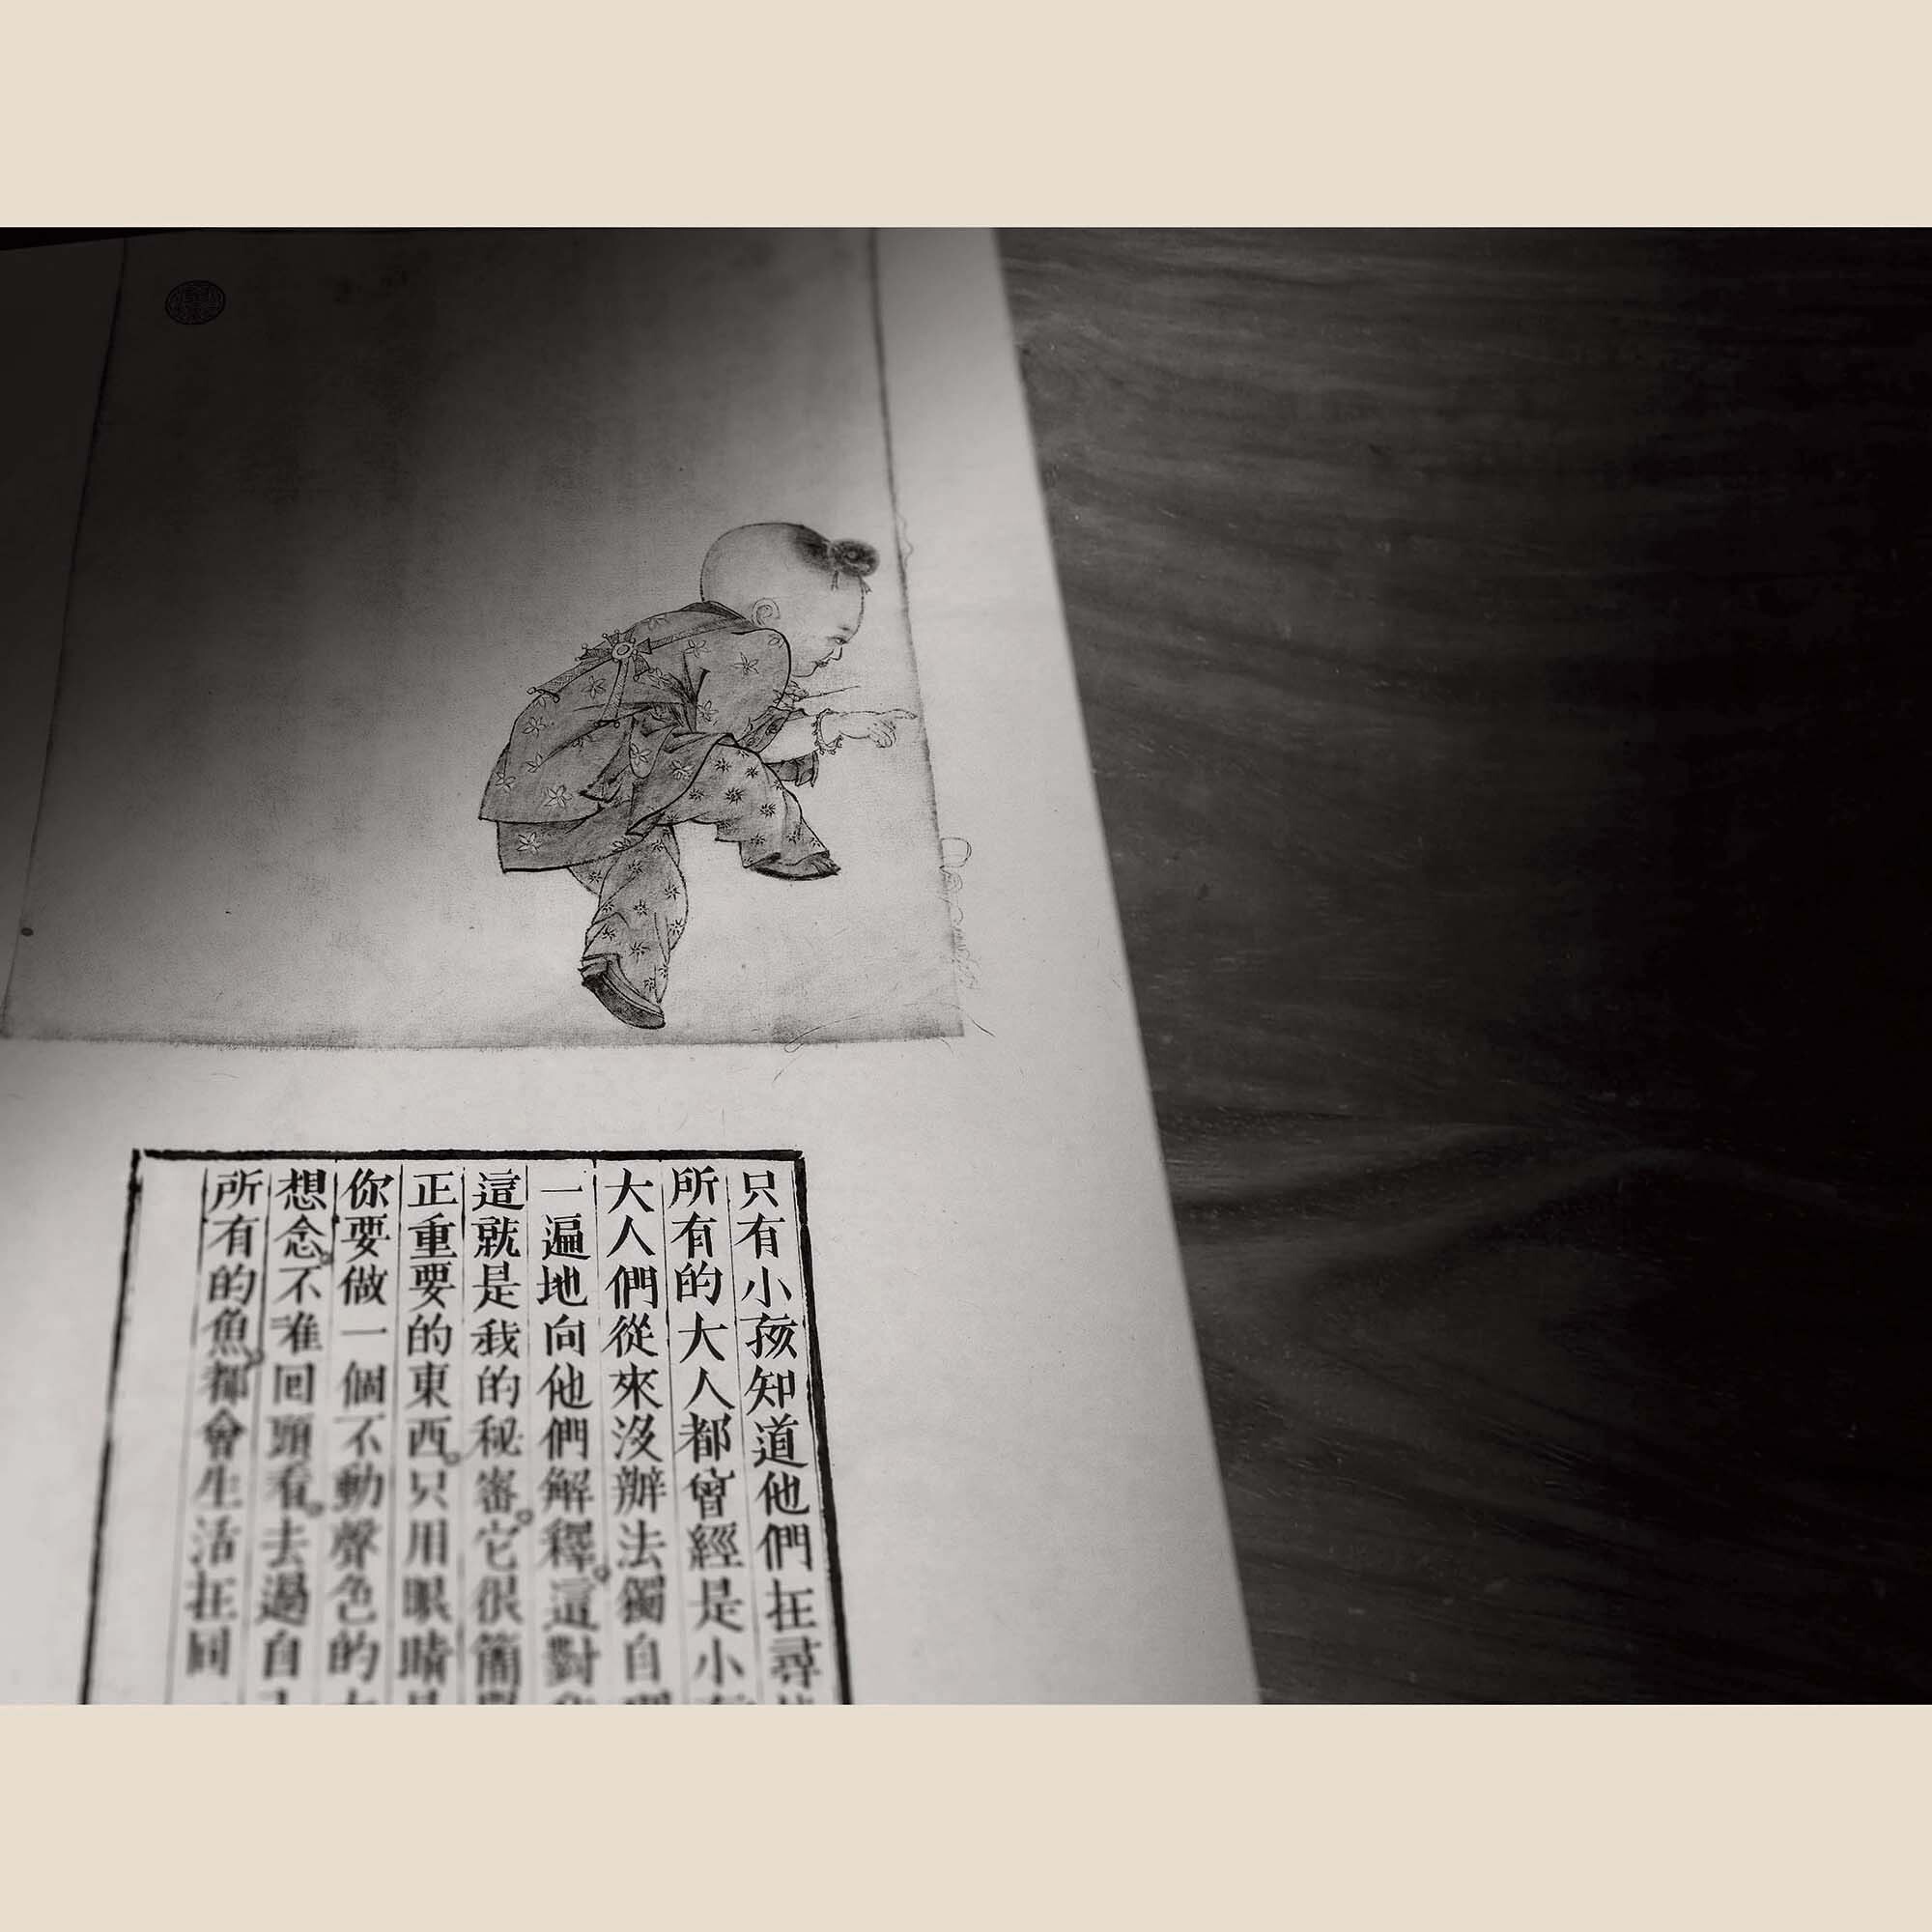 只有小孩知道他們在尋
所有的大人都曾經是小
大人們從來沒辦法獨自
一遍地向他們解釋。這對
這就是我的秘密。它很簡
正重要的東西。只用眼睛
你要做一個不動聲色的
想念。不准回頭看。去過自
所有的魚。都會生活在同